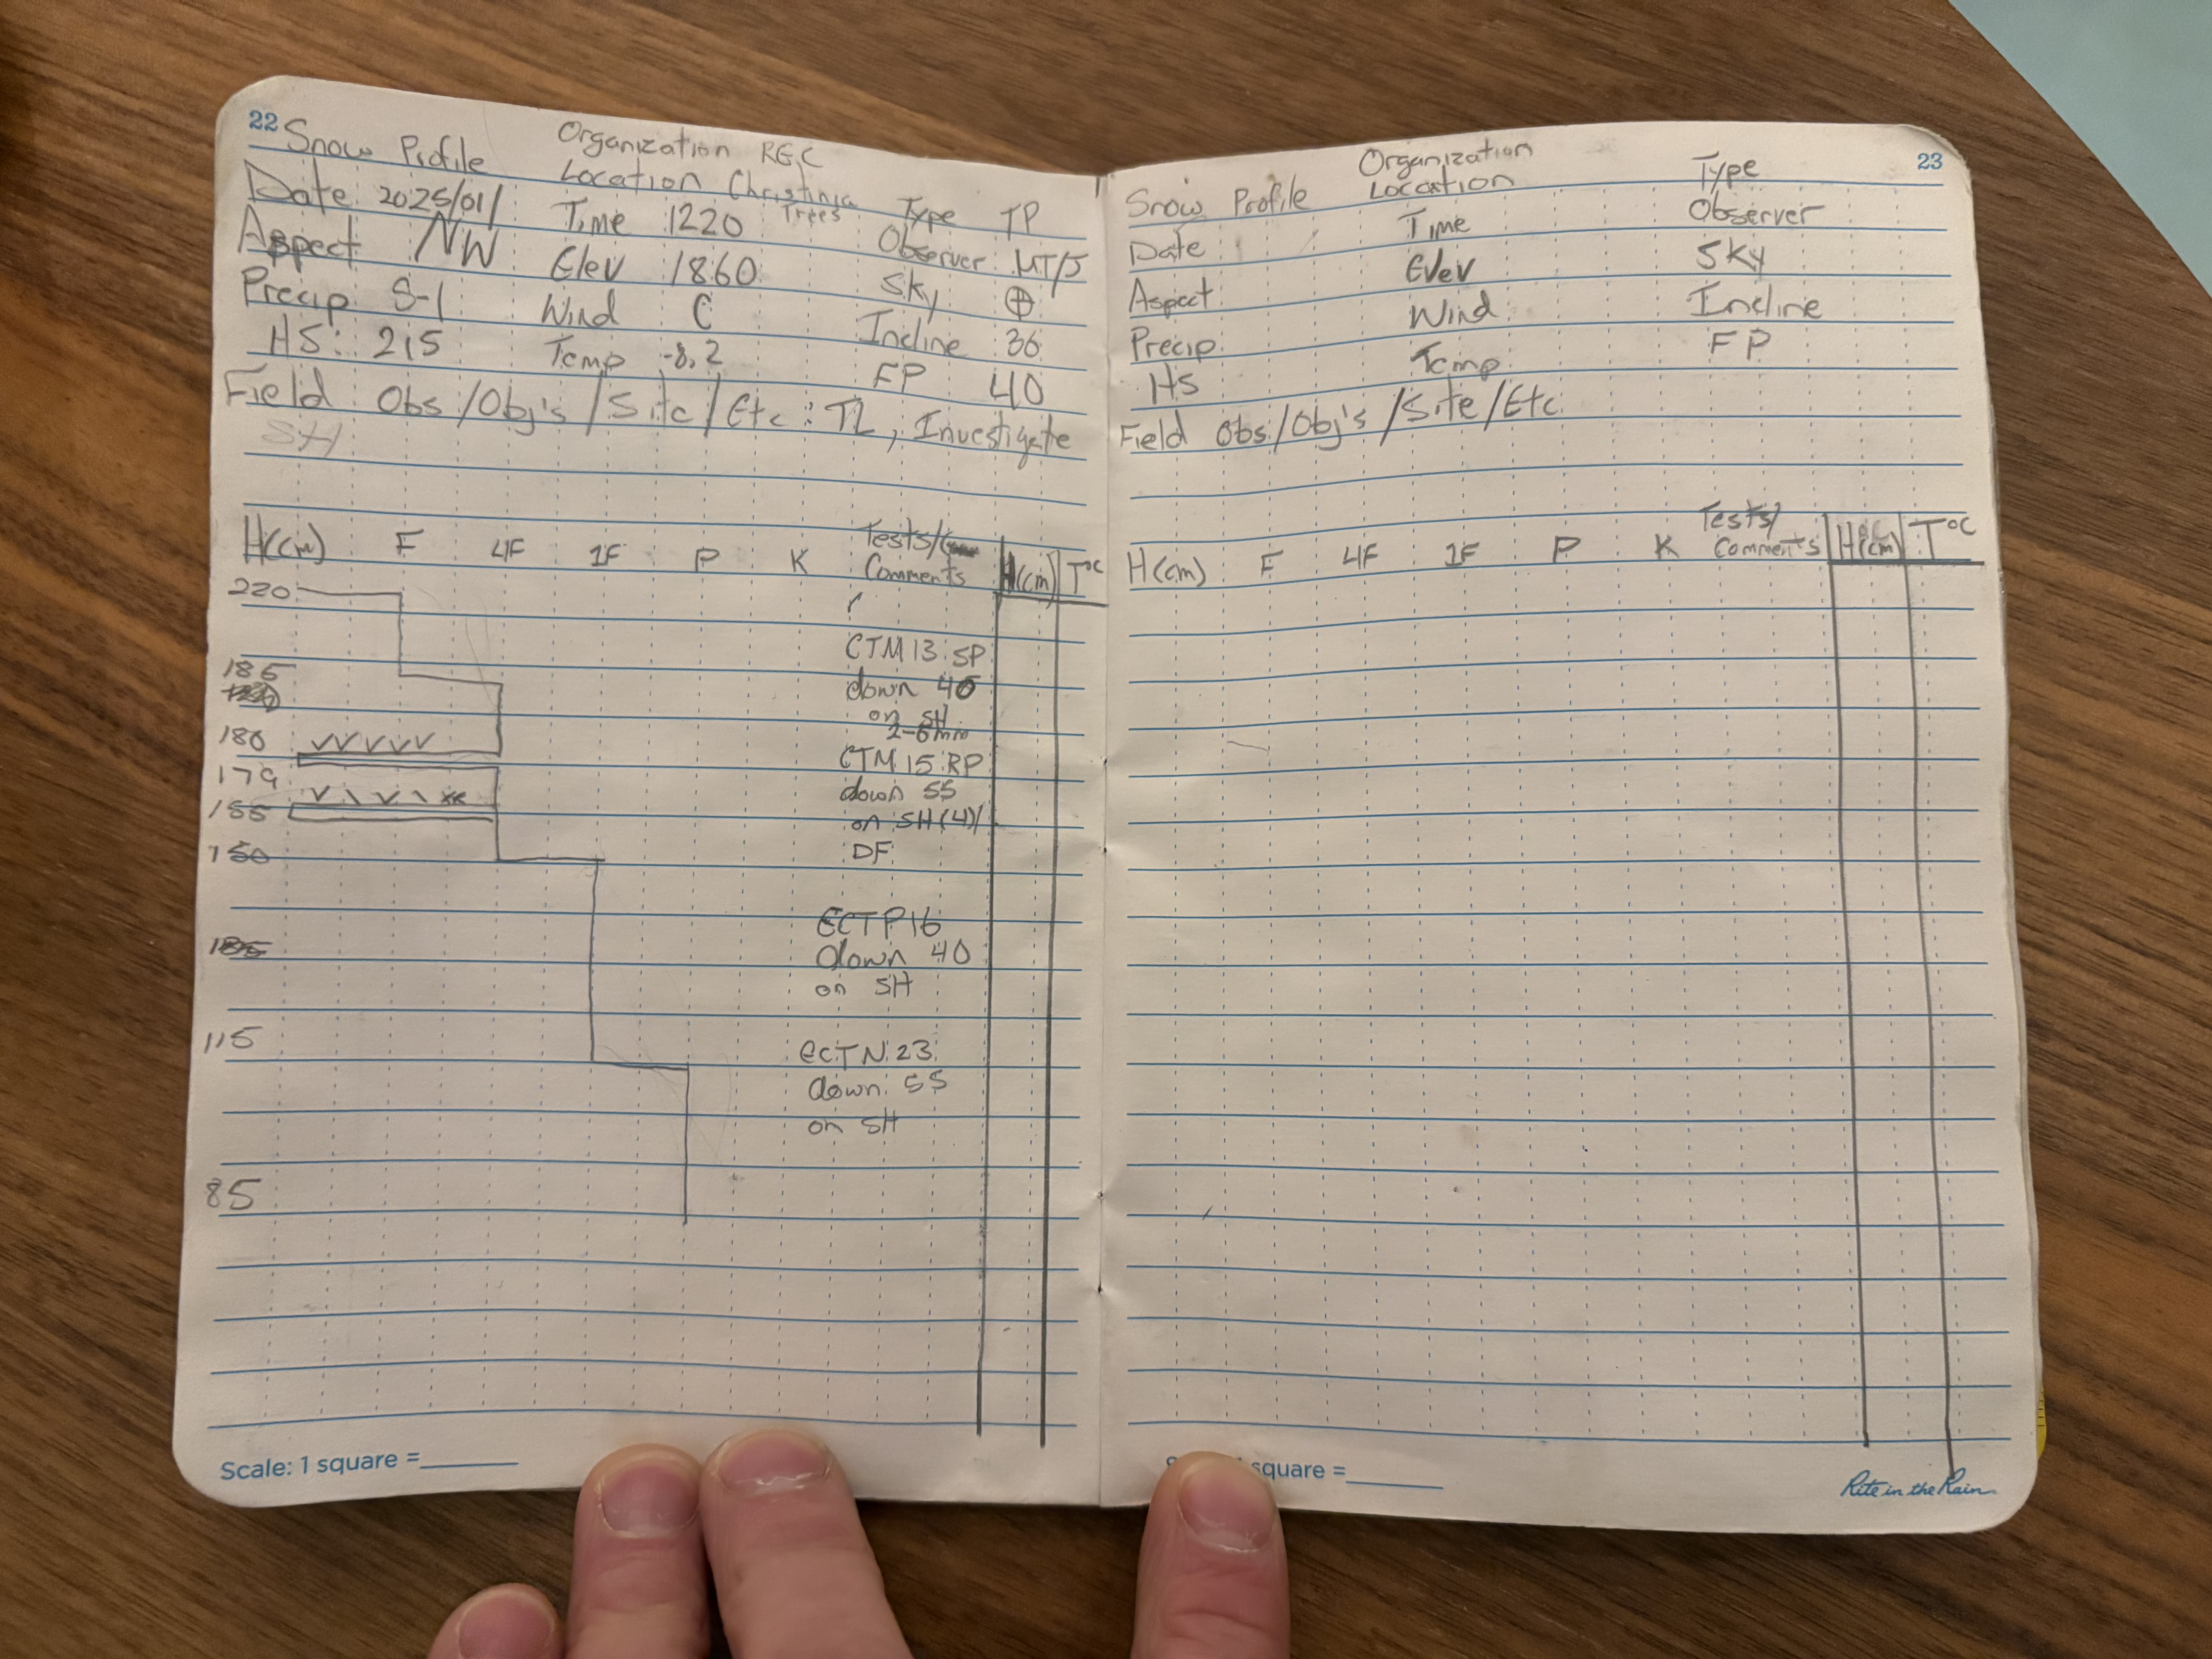 22
Snow Profile
Organization RGC
Location Christina Trees
Date 2025/01/
Time 1220
Type TP
Aspect NW
Elev 1860
Observer MT/J
Precip S-1
Wind C
Sky ⊕
HS: 215
Temp -8.2
Incline 36
FP 40
Field Obs/Obj's/Site/Etc: TL, Investigate
SH
H(cm) F 4F 1F P K Tests/ Comments H(cm) T°C
220
CTM 13 SP
185
down 40
on SH
2-6mm
180
CTM 15 RP
179
down 55
155
on SH(4)/
150
DF
ECTP16
down 40
on SH
115
ECTN 23
down 55
on SH
85
Scale: 1 square =
23
Snow Profile
Organization
Location
Type
Date
Time
Observer
Aspect
Elev
Sky
Precip
Wind
Incline
HS
Temp
FP
Field Obs/Obj's/Site/Etc
H(cm) F 4F 1F P K Tests/ Comments H(cm) T°C
square =
Rite in the Rain